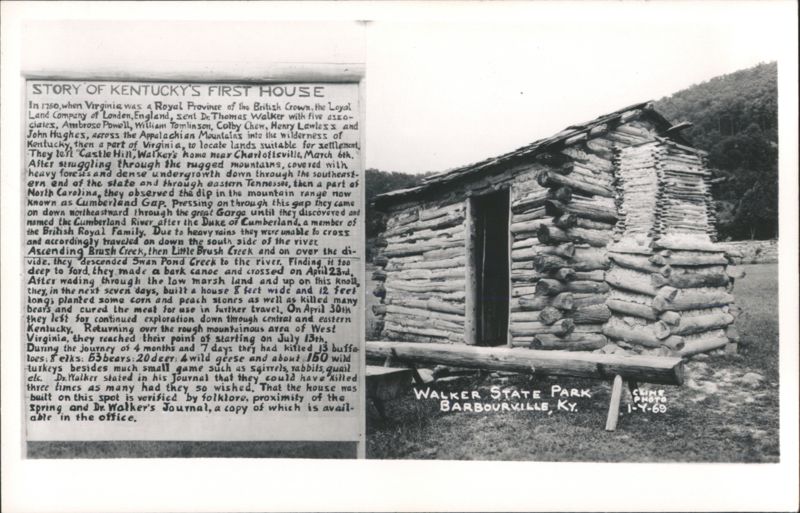 STORY OF KENTUCKY'S FIRST HOUSE
In 1750, when Virginia was a Royal Province of the British Crown, the Loyal
Land Company of London, England, sent Dr. Thomas Walker with five asso-
ciates, Ambrose Powell, William Tomlinson, Colby Chew, Henry Lawless and
John Hughes, across the Appalachian Mountains into the wilderness of
Kentucky, then a part of Virginia, to locate lands suitable for settlement.
They left "Castle Hill", Walker's home near Charlottesville, March 6th.
After struggling through the rugged mountains, covered with
heavy forests and dense undergrowth down through the southeast-
ern end of the state and through eastern Tennessee, then a part of
North Carolina, they observed the dip in the mountain range now
known as Cumberland Gap. Pressing on through this gap they came
on down northeastward through the great Gorge until they discovered and
named the Cumberland River after the Duke of Cumberland, a member of
the British Royal Family. Due to heavy rains they were unable to cross
and accordingly traveled on down the south side of the river.
Ascending Brush Creek, then Little Brush Creek and on over the di-
vide, they descended Swan Pond Creek to the river. Finding it too
deep to ford, they made a bark canoe and crossed on April 23rd.
After wading through the low marsh land and up on this knoll,
they, in the next seven days, built a house 8 feet wide and 12 feet
long; planted some corn and peach stones as well as killed many
bears and cured the meat for use in further travel. On April 30th
they left for continued exploration down through central and eastern
Kentucky. Returning over the rough mountainous area of West
Virginia, they reached their point of starting on July 13th.
During the journey of 4 months and 7 days they had killed 13 buffa-
loes: 8 elks: 53 bears: 20 deer: 4 wild geese and about 150 wild
turkeys besides much small game such as sqirrels, rabbits, quail
etc. Dr. Walker stated in his Journal that they could have killed
three times as many had they so wished. That the house was
built on this spot is verified by folklore, proximity of the
spring and Dr. Walker's Journal, a copy of which is avail-
able in the office.
WALKER STATE PARK
BARBOURVILLE, KY.
CLINE
PHOTO
1-Y-69